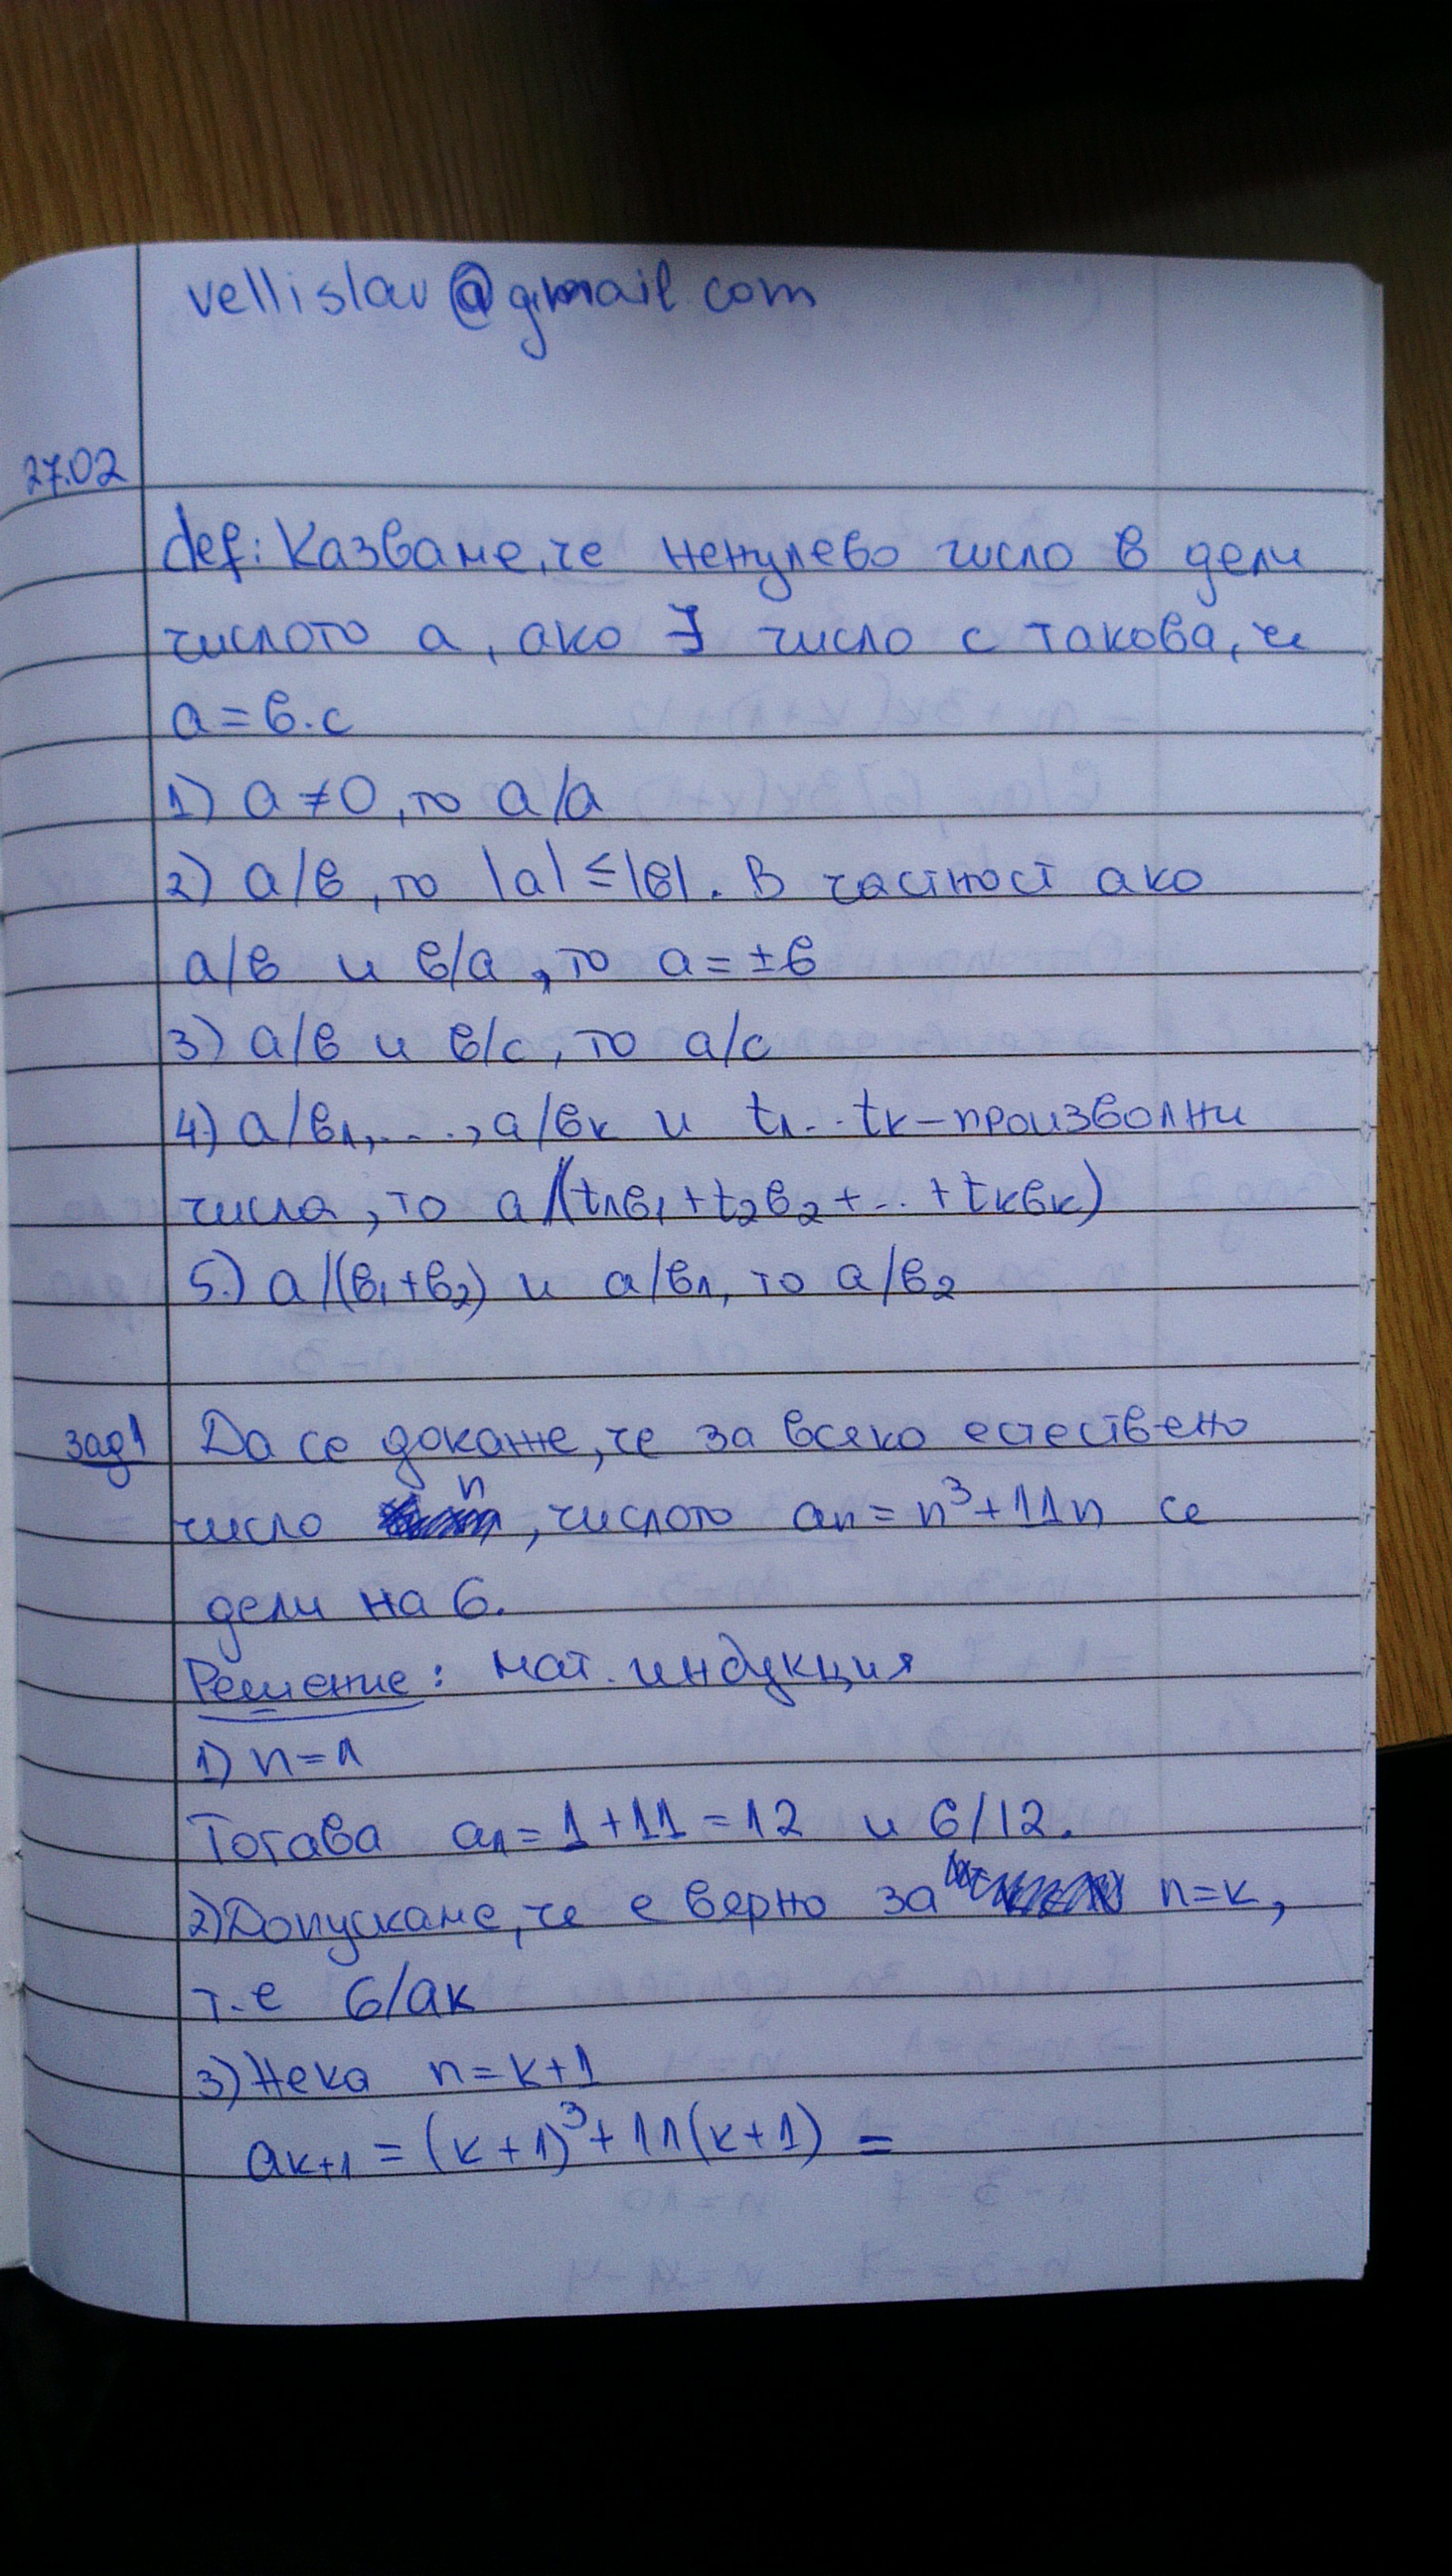 vellislav@gmail.com
27.02
def: Казваме, че ненулево число в дели
числото а, ако ∃ число с такова, че
а = в.с
1) а ≠ 0, то а/а
2) а/в, то |а| ≤ |в|. В частност ако
а/в и в/а, то а = ±в
3) а/в и в/с, то а/с
4) а/в₁, ..., а/вₖ и t₁...tₖ – произволни
числа, то а/(t₁в₁ + t₂в₂ + .. + tₖвₖ)
5.) а/(в₁+в₂) и а/в₁, то а/в₂
зад1 Да се докаже, че за всяко естествено
число n, числото aₙ = n³ + 11n се
дели на 6.
Решение: мат. индукция
1) n = 1
Тогава a₁ = 1 + 11 = 12 и 6/12.
2) Допускаме, че е вярно за n = k,
т.е 6/aₖ
3) Нека n = k+1
aₖ₊₁ = (k+1)³ + 11(k+1) =